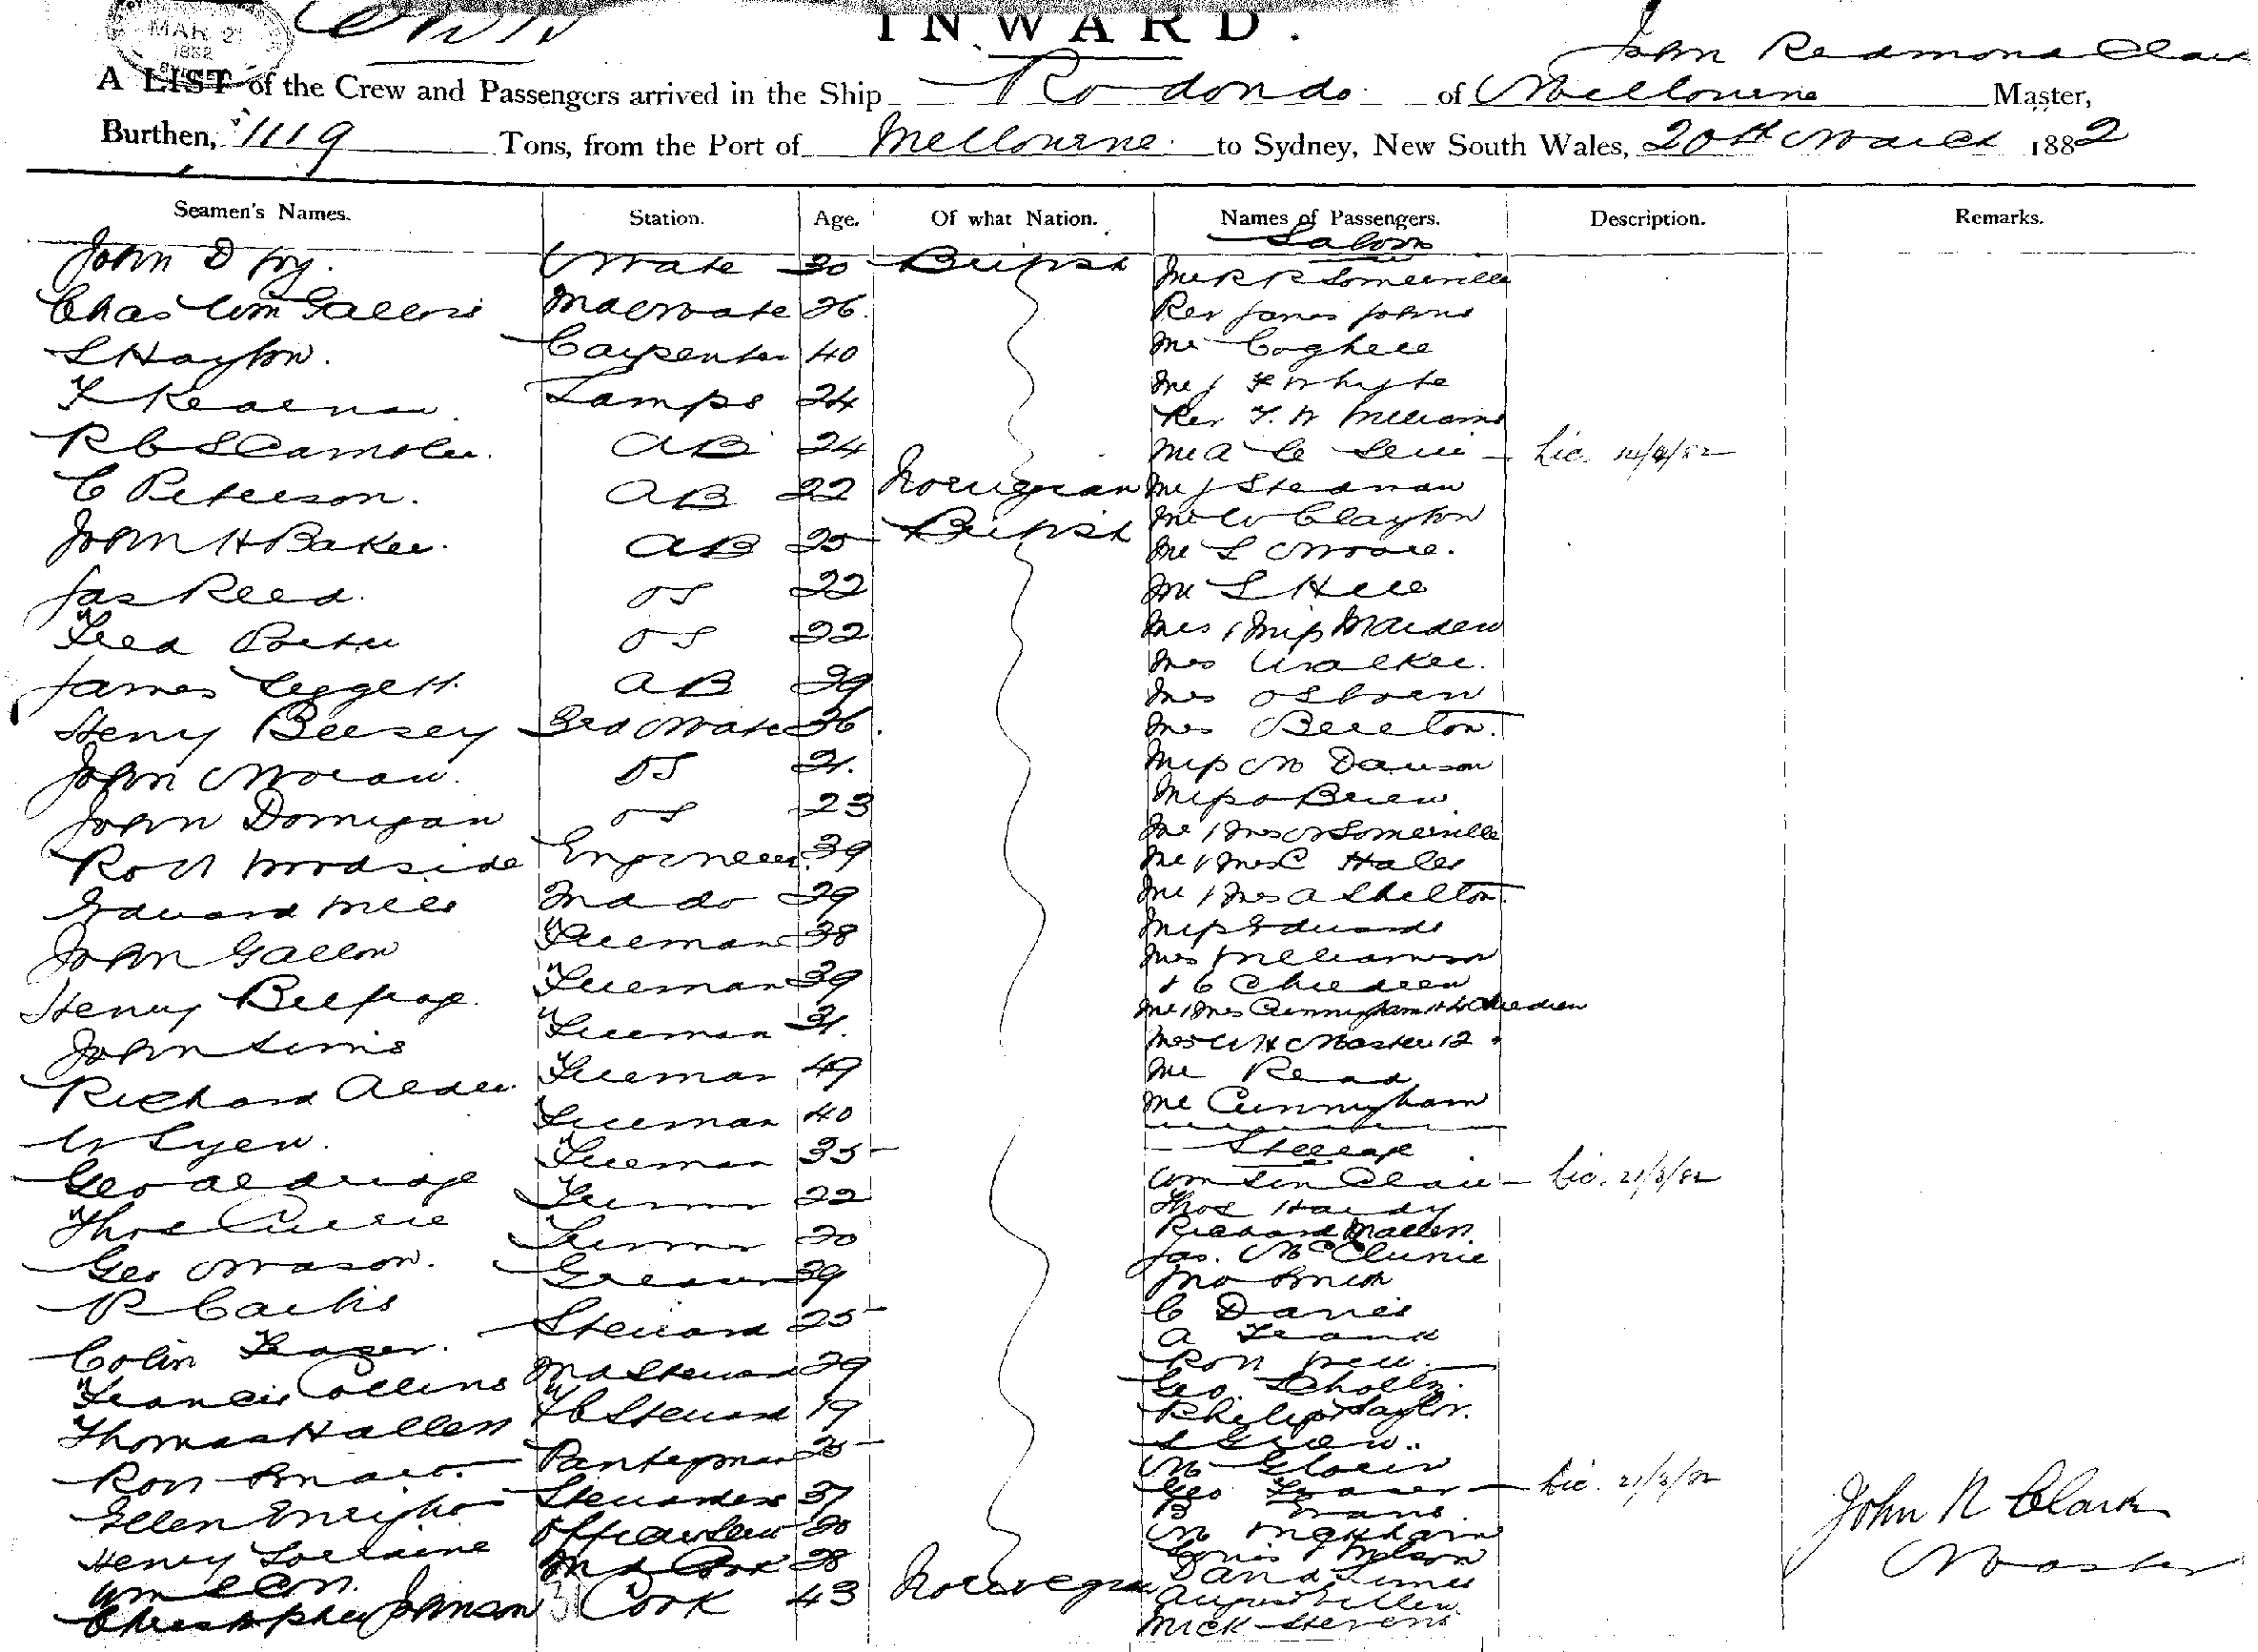 MAR 2
1882
INWARD.
John Redmond Clark
A LIST of the Crew and Passengers arrived in the Ship Rodondo of Melbourne Master,
Burthen, 1119 Tons, from the Port of Melbourne to Sydney, New South Wales, 20th March 1882
Seamen's Names. Station. Age. Of what Nation. Names of Passengers. Description. Remarks.
Saloon
John D Fry. Mate 30 British Mr R R Somerville
Chas Wm Gallon 2nd Mate 26. Rev James Johns
S Hayton. Carpenter 40 Mr Coghill
Lamps 24 Mr J F Whyte
Rev F. W Williams
R b S AB 24 Mr A C Levi Lic.
C Peterson. AB 22 Norwegian Mr J Stedman
John H Baker. AB 25 British Mr W Clayton
Mr S Moore.
Jas Reed. OS 22 Mr S Hill
Fred Porter OS 22 Mrs & Miss Maiden
Mrs Walker.
James Leggett. AB 29 Mrs Osborn
Henry Beesey 3rd Mate 36. Mrs Brereton.
John Moran. OS 21. Miss M Dawson
John Dornigan OS 23 Miss O Brien
Mr & Mrs W Somerville
Robt Woodside Engineer. 39 Mr & Mrs C Hales
Edward Mills 2nd do 29 Mr & Mrs A Shelton.
John Gallon Fireman 38 Miss Edwards
Mrs Williamson
Henry Belfrage. Fireman 39 & 6 Children
John Sims Fireman 31. Mr & Mrs Cunningham & Children
Mrs W H Master 12
Richard Alder. Fireman 49 Mr Read
W Syer. Fireman 40 Mr Cunningham
Steerage
Geo Aldridge Fireman 35 Wm Sinclair Lic. 21/3/82
Thos Currie Trimmer 22 Thos Hardy
Richard Mallen.
Geo Mason. Trimmer 20 Jas. McClunie
R Curtis Greaser 39 Jno Smith
C Davis
Colin Fraser. Steward 25 A
Francis Collins 2nd Steward 29 Robt
Geo. Scholtz.
Thomas Hallen F C Steward 19 Philip Taylor.
Robt Pantryman 25
M
Ellen Stewardess 37 Geo Fraser Lic. 21/3/82
B Evans
Henry Lorraine Officers Serv 20 M
Louis Nelson
Wm 2nd Cook 28 David Jones
Christopher Johnson 31 Cook 43 Norwegian August
Mick Stevens
John R Clark
Master